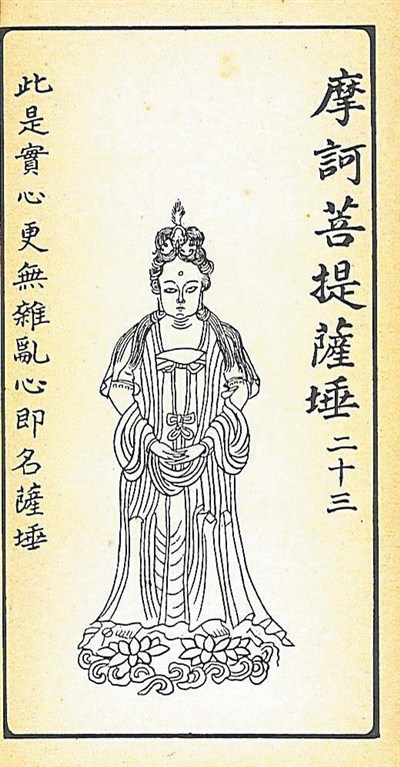 摩訶菩提薩埵 二十三
此是實心更無雜亂心即名薩埵